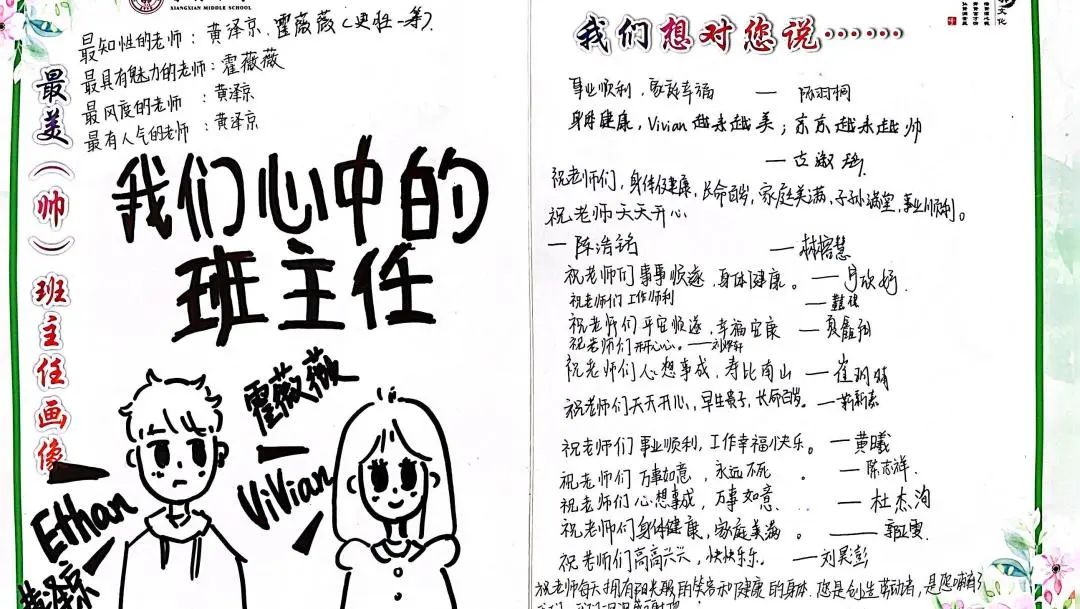 XIANGXIAN MIDDLE SCHOOL
最知性的老师：黄泽京、霍薇薇（更胜一筹）
最具有魅力的老师：霍薇薇
最风度的老师：黄泽京
最有人气的老师：黄泽京
最美（帅）班主任画像
我们心中的
班主任
霍薇薇
Ethan
ViVian
黄泽京
我们想对您说……
文化
事业顺利，家庭幸福 — 陈羽桐
身体健康，Vivian越来越美；京京越来越帅
祝老师们，身体健康，长命百岁，家庭美满，子孙满堂，事业顺利。
祝老师天天开心
— 陈浩铭 — 林榕慧
祝老师们事事顺遂，身体健康。
祝老师们工作顺利
祝老师们平安顺遂，幸福安康
祝老师们开开心心。
祝老师们心想事成，寿比南山
祝老师们天天开心，早生贵子，长命百岁。
祝老师们事业顺利，工作幸福快乐。— 黄曦
祝老师们万事如意，永远不死。— 陈志祥
祝老师们心想事成，万事如意. — 杜杰洵
祝老师们身体健康，家庭美满。
祝老师们高高兴兴，快快乐乐。— 刘昊澎
祝老师每天拥有阳光般的笑容和健康的身体.您是创造劳动者，是您哺育了